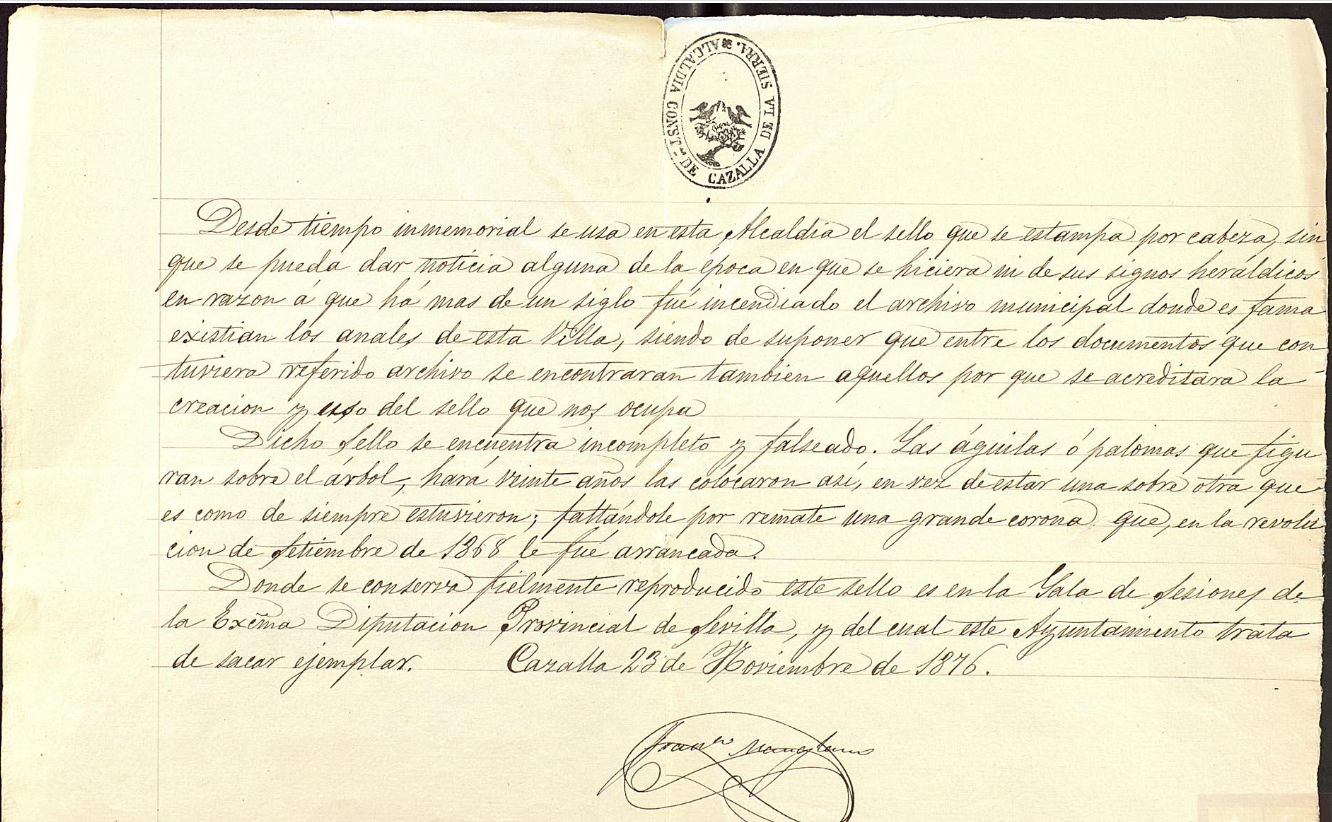 ALCALDIA CONST.- DE CAZALLA DE LA SIERRA.
Desde tiempo inmemorial se usa en esta Alcaldia el sello que se estampa por cabeza, sin
que se pueda dar noticia alguna de la epoca en que se hiciera ni de sus signos heráldicos
en razon á que há mas de un siglo fué incendiado el archivo municipal donde es fama
existian los anales de esta Villa, siendo de suponer que entre los documentos que con
tuviera referido archivo se encontraran tambien aquellos por que se acreditára la
creacion y uso del sello que nos ocupa
Dicho sello se encuentra incompleto y falseado. Las águilas ó palomas que figu
ran sobre el árbol, hará veinte años las colocaron así, en vez de estar una sobre otra que
es como de siempre estuvieron; faltándole por remate una grande corona que, en la revolu
cion de Setiembre de 1868 le fué arrancada.
Donde se conserva fielmente reproducido este sello es en la Sala de sesiones de
la Excma Diputacion Provincial de Sevilla, y del cual este Ayuntamiento trata
de sacar ejemplar. Cazalla 23 de Noviembre de 1876.
Franco